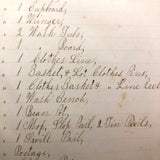 " 1 Cupboard,
" 1 Wringer,
" 2 Wash Tubs,
" 1 " Board,
" 1 Clothes Line,
" 1 Basket & Lot Clothes Pins,
" 1 Clothes Basket & " Line Reel
" 1 Wash Bench,
" 1 Bean Pot,
" 1 Mop, Slop Pail, 2 Tin Pails.
" 1 Swill Pail,
Postage,